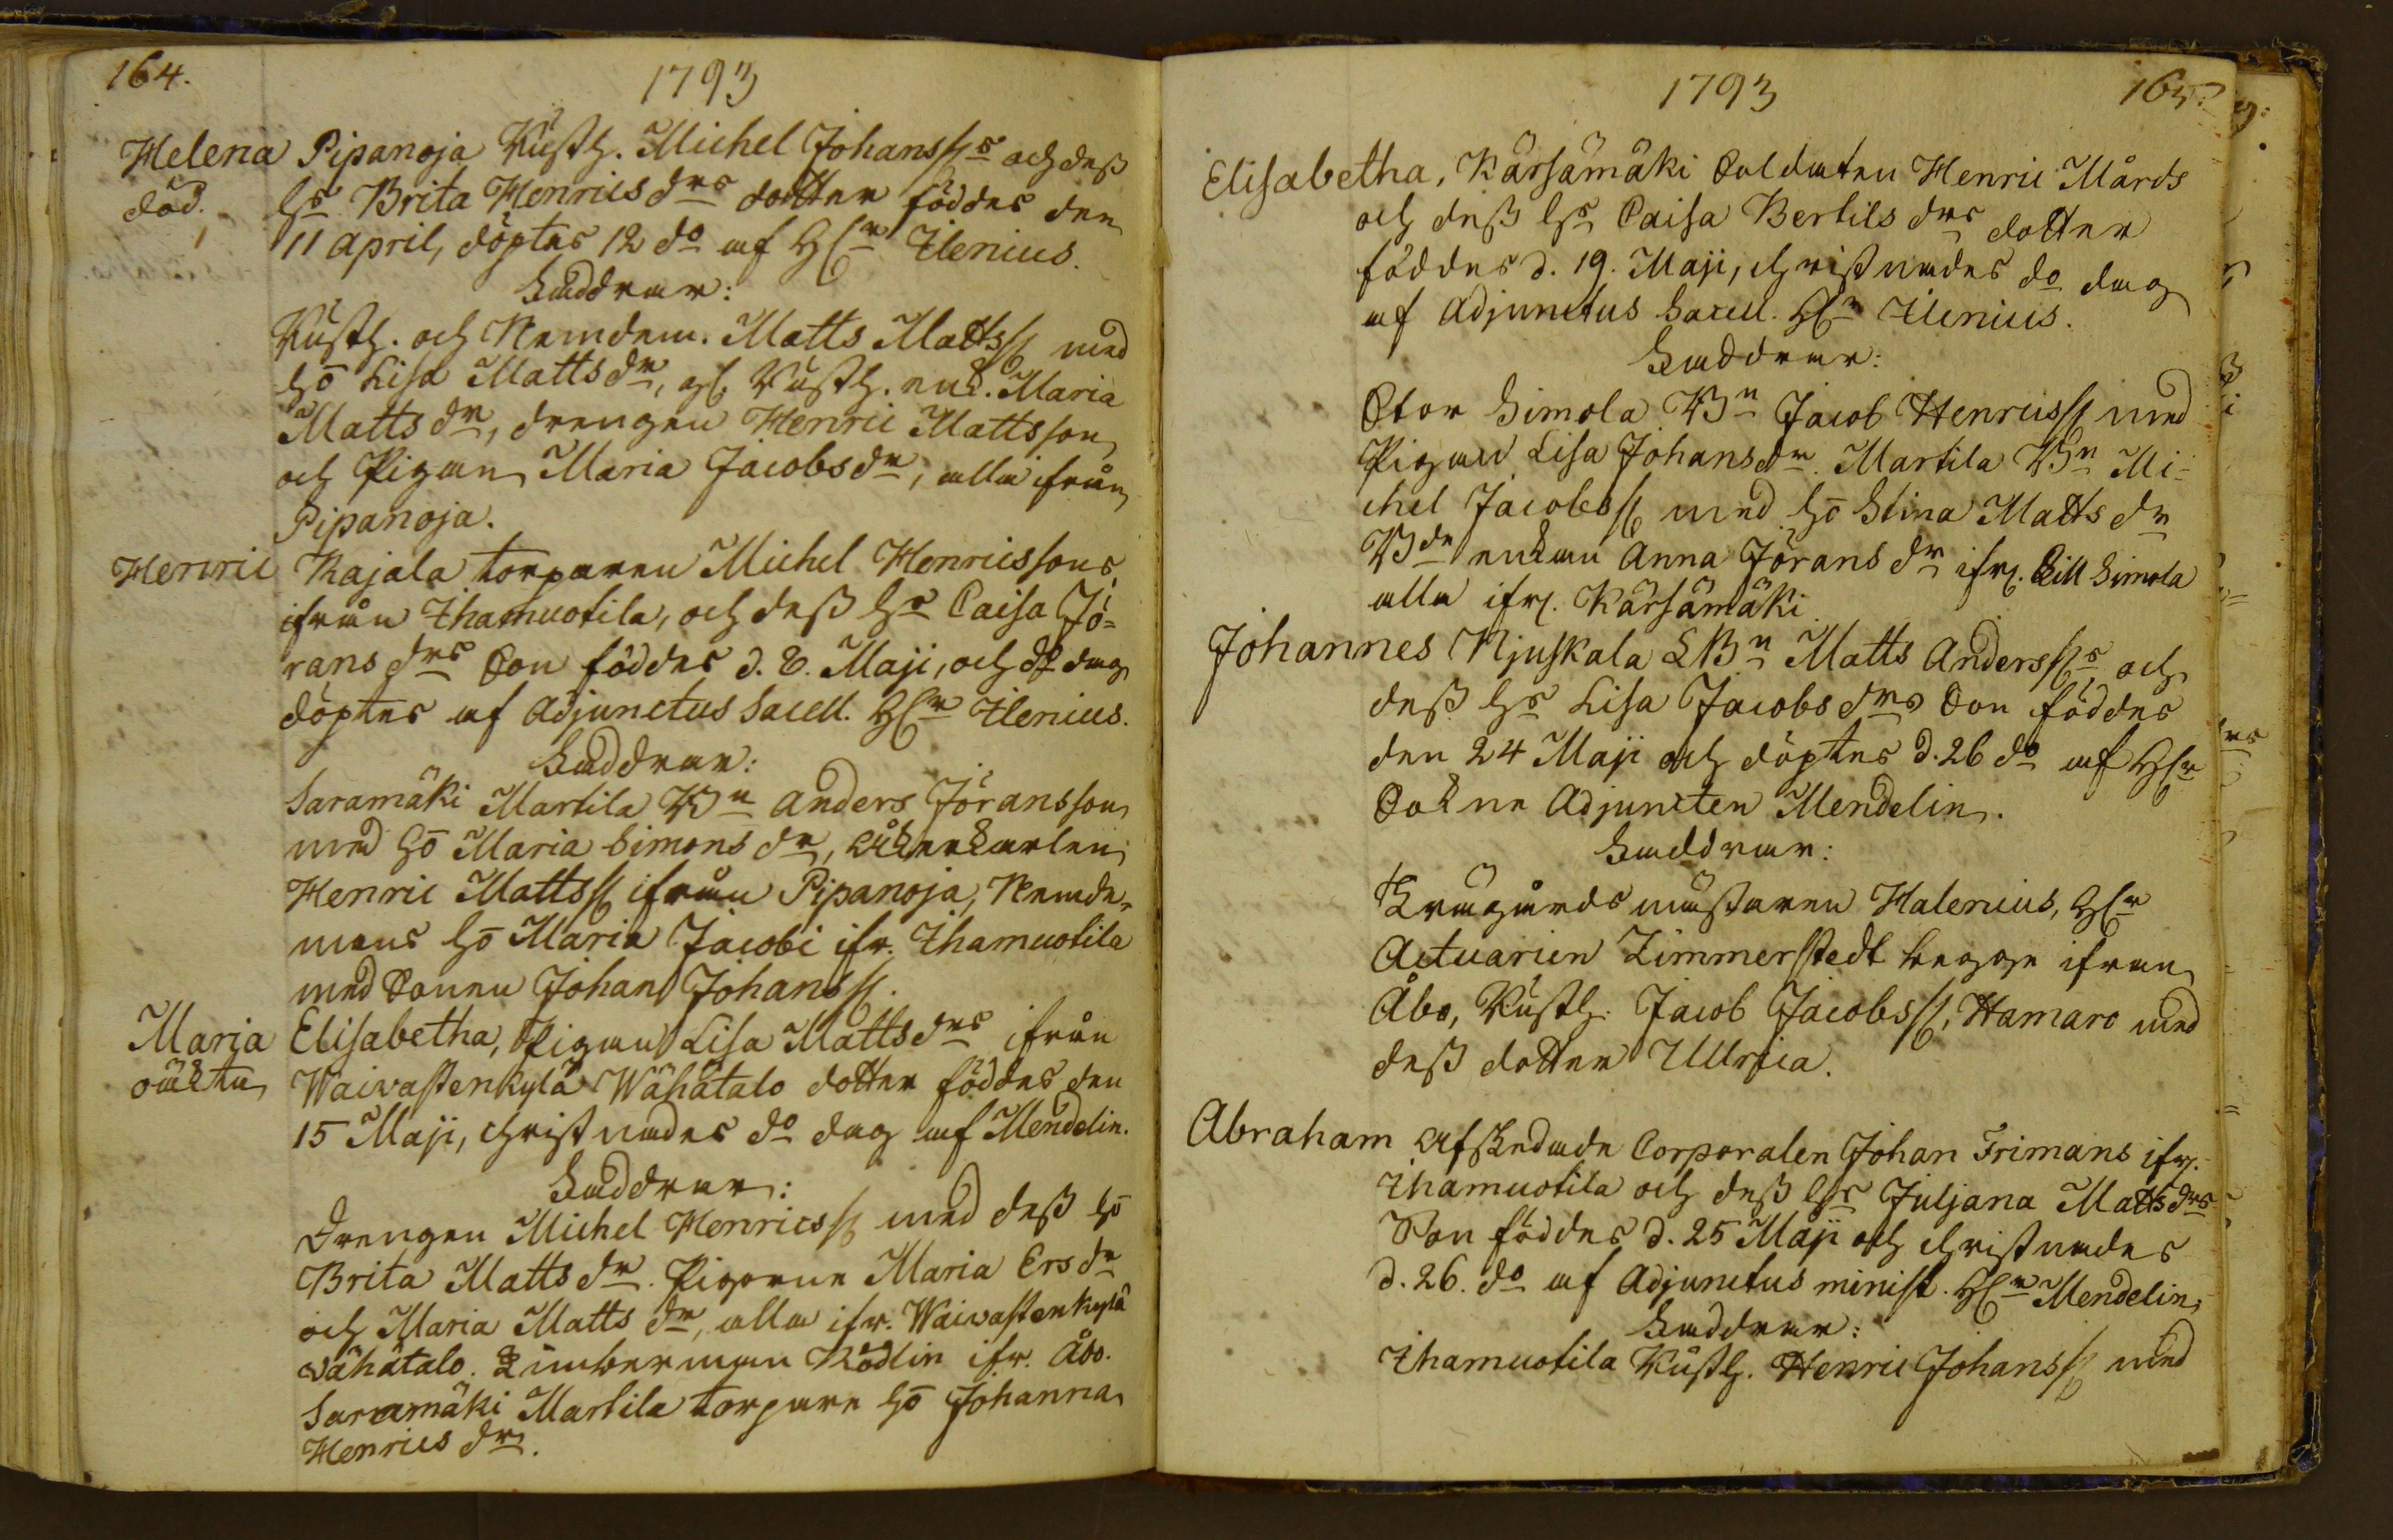 164.
1793
Helena Pipanoja Rusth. Michel Johanss:s och dess
död. hs Brita Henricsdrs dotter föddes den
11 April, döptes 12 do af HEr Ilenius.
Faddrar:
Rusth. och Nemdem. Matts Mattss: med
ho Lisa Mattsdr, gl. Rusth. enk. Maria
Mattsdr, drengen Henric Mattsson
och Pigan Maria Jacobsdr, alla ifrån
Pipanoja.
Henric Rajala torparen Michel Henricssons
ifrån Ihamuotila, och dess hs Caisa Jö-
rans drs Son föddes d. 8. Maji, och do dag
döptes af Adjunctus Sacell. HEr Ilenius.
Faddrar:
Saramäki Martila Bn Anders Jöransson
med ho Maria Simons dr, Åkerkarlen
Henric Mattss: ifrån Pipanoja, Nemde-
mans ho Maria Jacobi ifr. Ihamuotila
med Sonen Johan Johanss:.
Maria Elisabetha, Pigan Lisa Mattsdrs ifrån
oäkta Waivastenkylä Wähätalo dotter föddes den
15 Maji, christnades do dag af Mendelin.
Faddrar:
Drengen Michel Henricss: med dess ho
Brita Mattsdr. Pigorne Maria Ersdr
och Maria Matts dr, alla ifr. Waivastenkylä
vähätalo. Timberman Rödlin ifr. Åbo.
Saramäki Martila torpare ho Johanna
Henrics dr.
1793
165.
Elisabetha, Kärsämäki Soldaten Henric Mårds
och dess hs Caisa Bertils drs dotter
föddes d. 19. Maji, christnades do dag
af Adjunctus Sacell. HEr Ilenius.
Faddrar:
Stor Simola Bn Jacob Henricss: med
Pigan Lisa Johansdr. Martila Bn Mi-
chel Jacobss: med ho Stina Matts dr
Bde enkan Anna Jörans dr ifr. Lill Simola
alla ifr. Kärsämäki
Johannes Njuskala LBn Matts Anderss:s och
dess hs Lisa Jacobs drs Son föddes
den 24 Maji och döptes d. 26 do af HEr
Sokne Adjuncten Mendelin.
Faddrar:
Trägårdsmästaren Halenius, HEr
Actuarien Zimmerstedt begge ifrån
Åbo, Rusth. Jacob Jacobss:, Hamaro med
dess dotter Ulrica.
Abraham Afskedade Corporalen Johan Frimans ifr.
Ihamuotila och dess hs Juljana Mattsdrs
Son föddes d. 25 Maji och christnades
d. 26. do af Adjunctus minist. HEr Mendelin.
Faddrar:
Ihamuotila Rusth. Henric Johanss: med